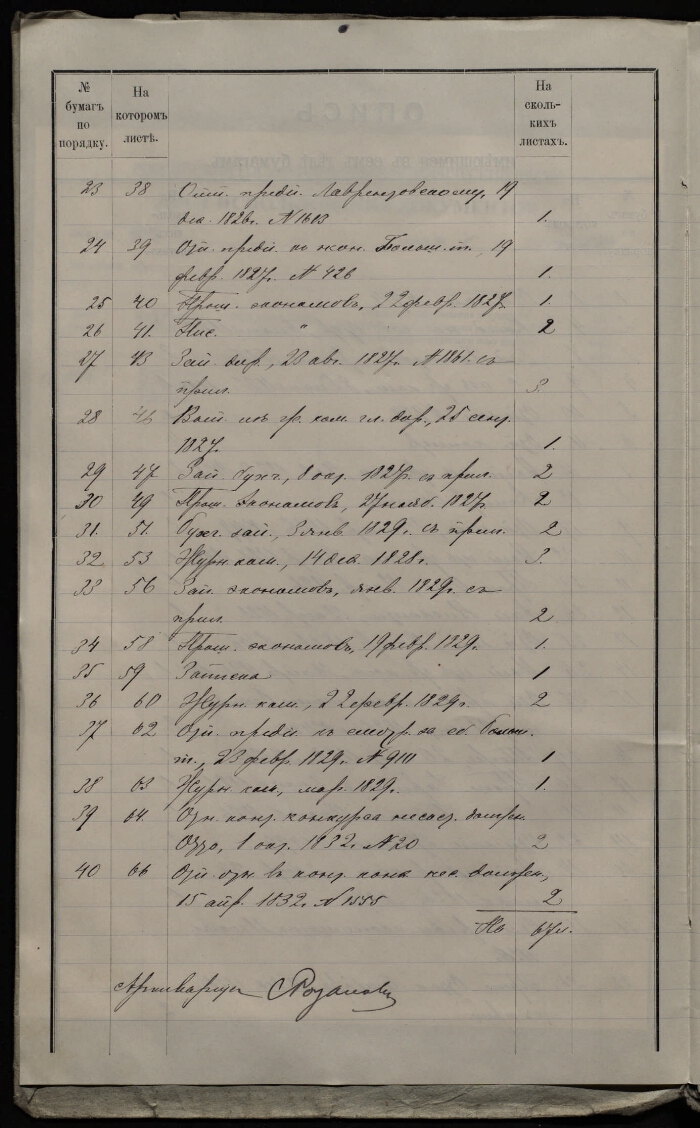 № бумагъ по порядку.
На которомъ листѣ.
На сколькихъ листахъ.
23 38 Отп. предп. Лаврентовскому, 19
дек. 1826г. N 1613 1.
24 39 Отп. предп. въ кон. Больш. т., 19
февр. 1827г. N 426 1.
25 40 Прош. экономовъ, 22 февр. 1827г. 1.
26 41. Пис. " 2
27 43 Зап. дир., 23 авг. 1827г. N 1861. съ
прил. 3.
28 46 Вып. изъ жр. ком. гл. дир., 25 сент.
1827. 1.
29 47 Зап. бухг., 8 окт. 1827г. съ прил. 2
30 49 Прош. экономовъ, 27 нояб. 1827г. 2
31. 51. Бухг. зап., 3 янв. 1829г. съ прил. 2
32 53 Журн. ком., 14 дек. 1828г. 3.
33 56 Зап. экономовъ, янв. 1829г. съ
прил. 2
34 58 Прош. экономовъ, 19 февр. 1829г. 1.
35 59 Записка 1
36 60 Журн. ком., 22 февр. 1829г. 2
37 62 Отп. предп. къ смотр. за сб. Больш.
т., 23 февр. 1829г. N 910 1.
38 63 Журн. ком., мар. 1829г. 1.
39 64. Отн. конт. конкурса несост. должн.
1 окт. 1832г. N 20 2
40 66 Отп. отн. въ конт. конк. нес. должн.,
15 апр. 1832г. N 1555 2
На 67 л.
Архиваріусъ СРозановъ